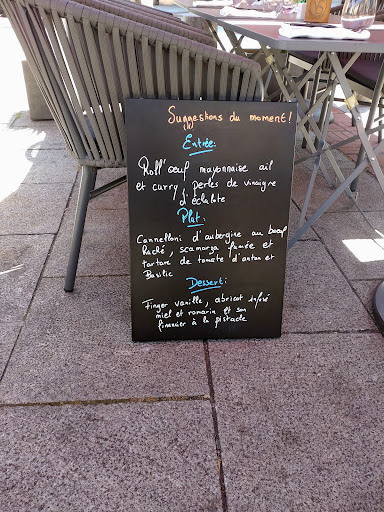 Suggestions du moment!
Entrée:
Roll'oeuf mayonnaise ail
et curry, perles de vinaigre
d'échalote
Plat:
Cannelloni d'aubergine au boeuf
haché, scamorza fumée et
tartare de tomate d'antan et
Basilic
Dessert:
Finger vanille, abricot infusé
miel et romarin et son
financier à la pistache